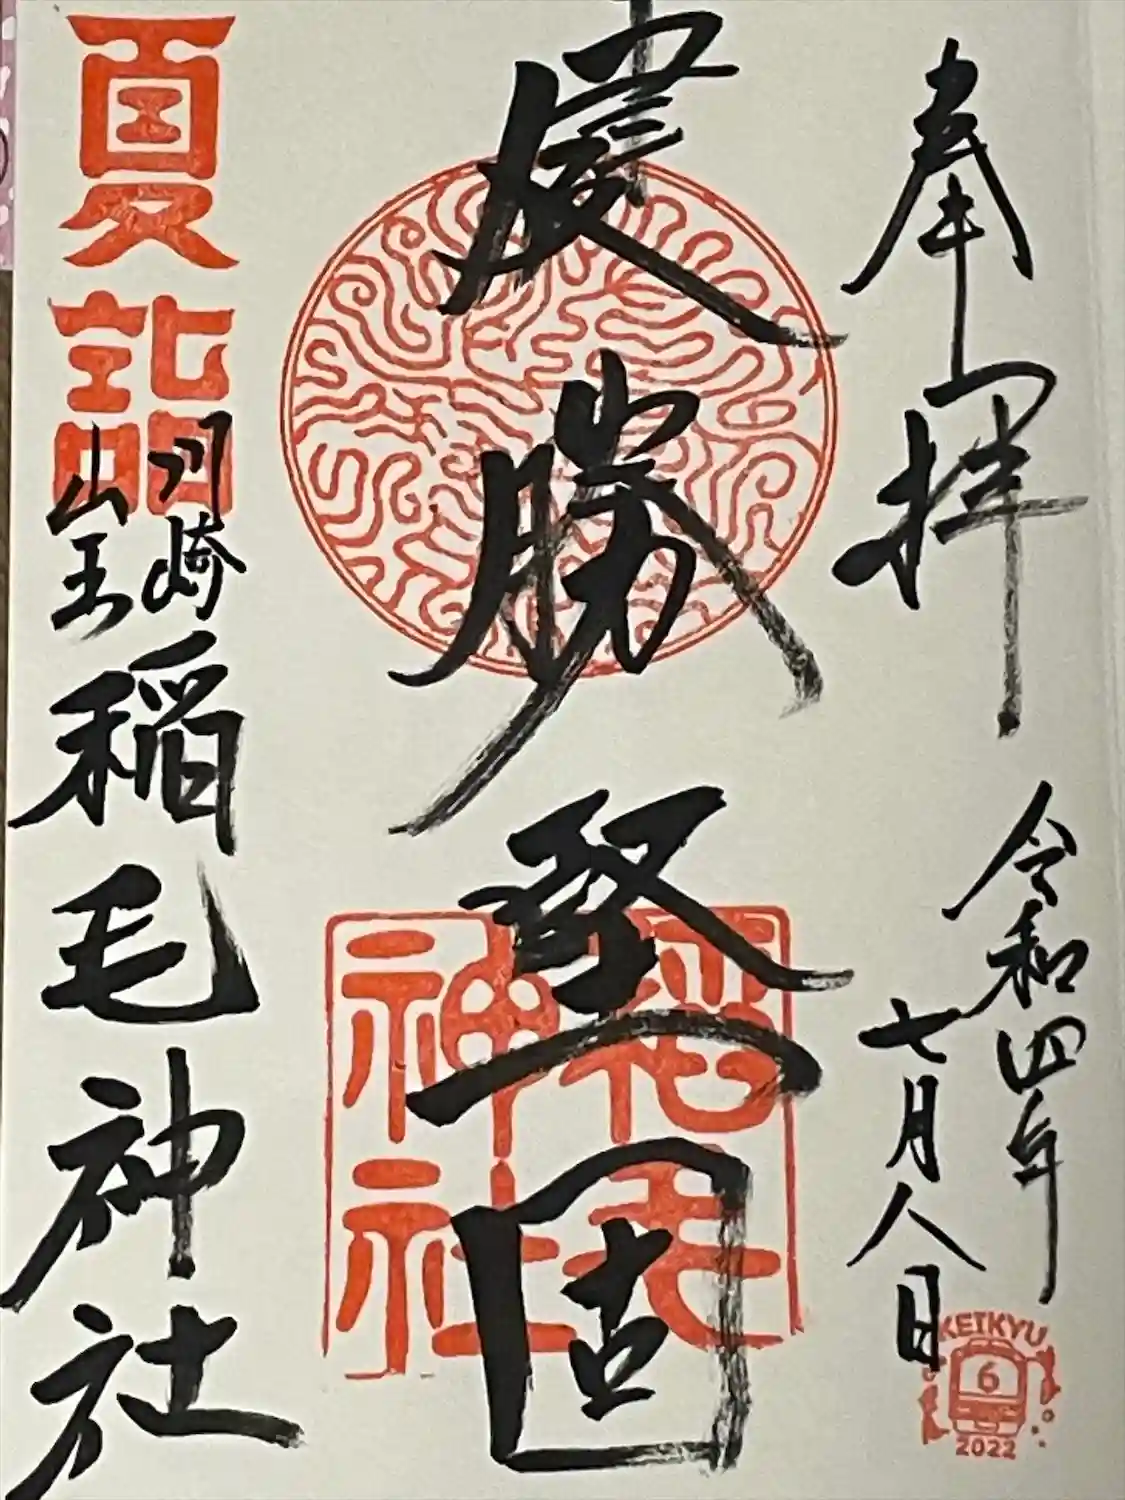 奉拝
令和四年
七月八日
勝堅固
稲毛
神社
夏詣
川崎
山王
稲毛神社
KEIKYU
6
2022